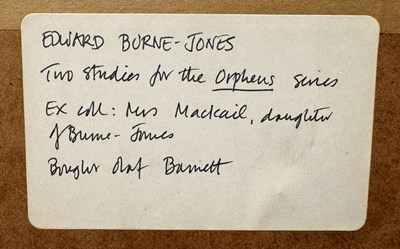 EDWARD BURNE-JONES
Two studies for the Orpheus series
Ex coll: Mrs Mackail, daughter
of Burne-Jones
Bought Olaf Barnett